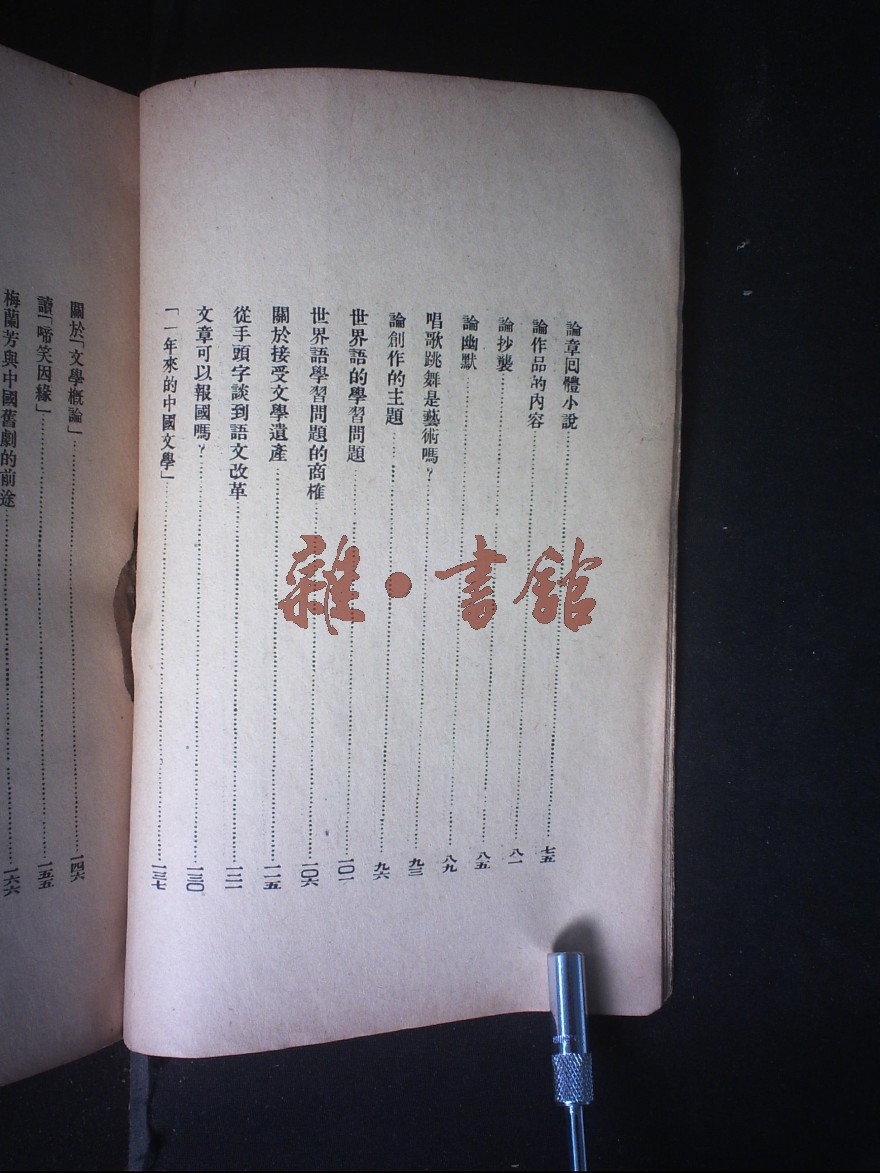 論章回體小說……七五
論作品的內容……八一
論抄襲……八五
論幽默……八九
唱歌跳舞是藝術嗎？……九三
論創作的主題……九六
世界語的學習問題……一〇一
世界語學習問題的商榷……一〇六
關於接受文學遺產……一一五
從手頭字談到語文改革……一二一
文章可以報國嗎？……一三〇
「一年來的中國文學」……一三七
關於「文學概論」……一四六
讀「啼笑因緣」……一五五
梅蘭芳與中國舊劇的前途……一六六
雜·書館